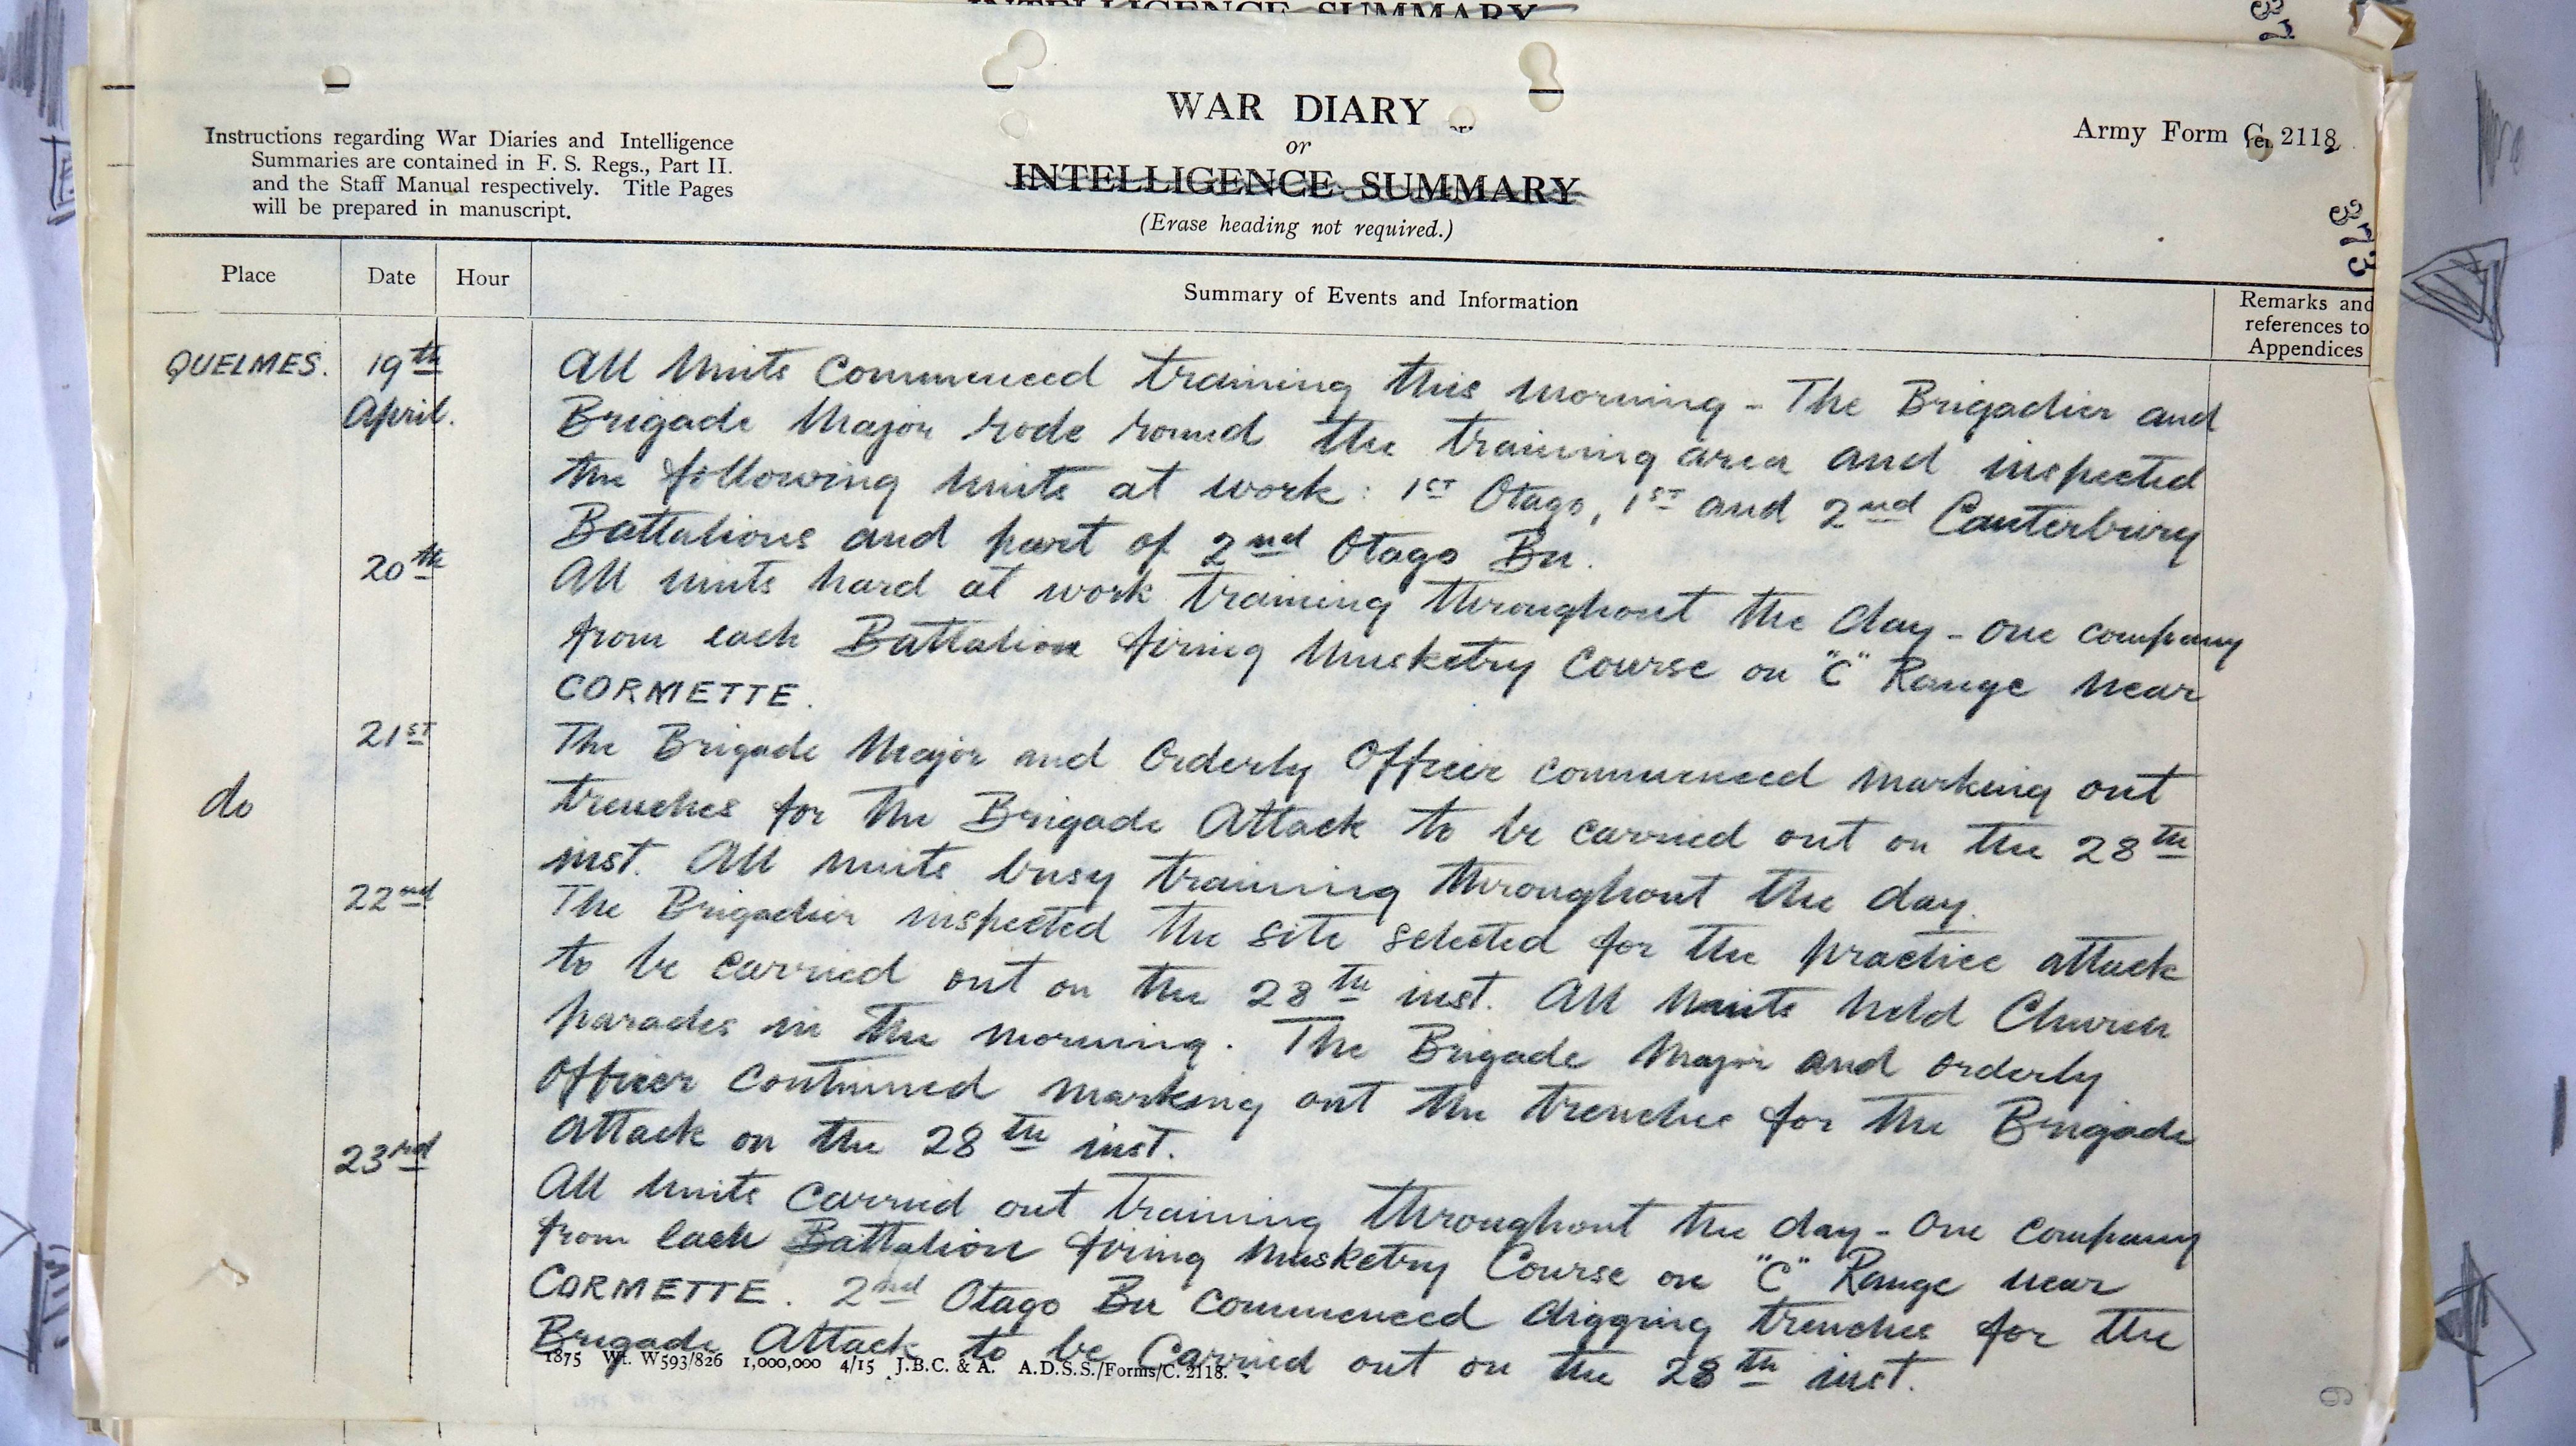 INTELLIGENCE SUMMARY
WAR DIARY
or
INTELLIGENCE SUMMARY
(Erase heading not required.)
Instructions regarding War Diaries and Intelligence
Summaries are contained in F. S. Regs., Part II.
and the Staff Manual respectively. Title Pages
will be prepared in manuscript.
Army Form C. 2118
373
Place
Date
Hour
Summary of Events and Information
Remarks and
references to
Appendices
QUELMES.
19th
April.
All Units Commenced training this morning - The Brigadier and
Brigade Major rode round the training area and inspected
the following units at work: 1st Otago, 1st and 2nd Canterbury
Battalions and part of 2nd Otago Bn.
20th
All units hard at work training throughout the day - one company
from each Battalion firing Musketry Course on "C" Range near
CORMETTE.
21st
The Brigade Major and Orderly Officer commenced marking out
do
trenches for the Brigade Attack to be carried out on the 28th
inst. All units busy training throughout the day.
22nd
The Brigadier inspected the site selected for the practice attack
to be carried out on the 28th inst. All Units held Church
parades in the morning. The Brigade Major and orderly
Officer continued marking out the trenches for the Brigade
Attack on the 28th inst.
23rd
All Units carried out training throughout the day - One Company
from each Battalion firing Musketry Course on "C" Range near
CORMETTE. 2nd Otago Bn commenced digging trenches for the
Brigade Attack to be Carried out on the 28th inst.
1875 Wt. W593/826 1,000,000 4/15 J.B.C. & A. A.D.S.S./Forms/C. 2118.